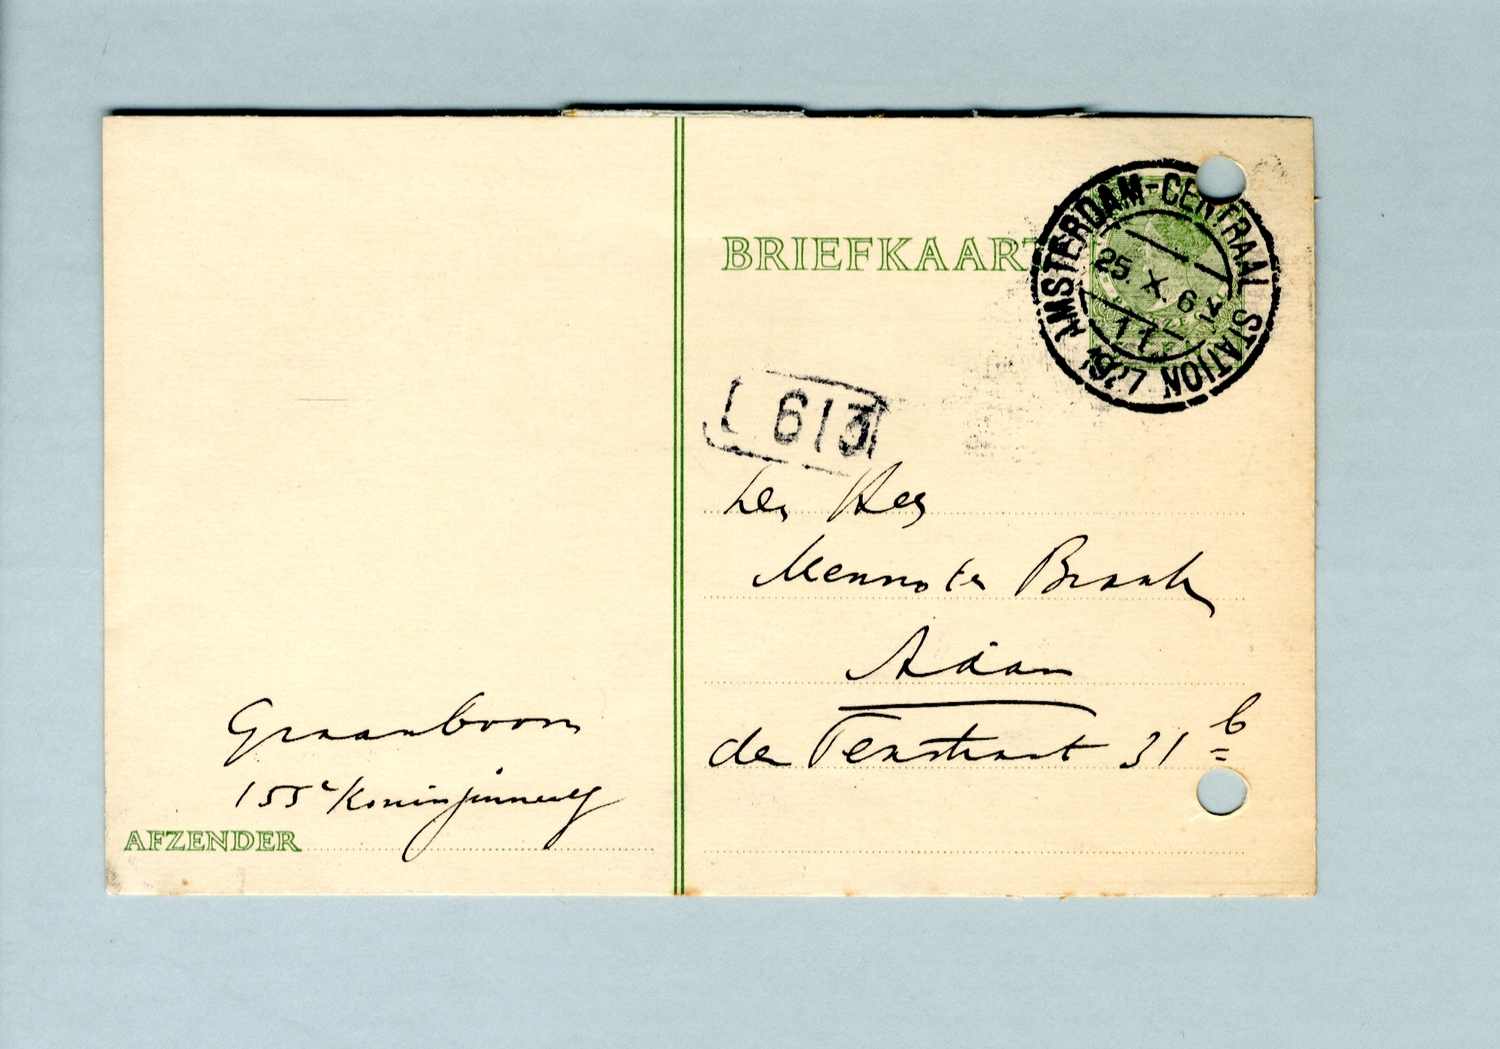 BRIEFKAART
AMSTERDAM-CENTRAAL STATION
25. X. 6
613
Den Heer
Menno ter Braak
Adam
den Texstraat 31 b
Graanboom
155c Koninginneweg
AFZENDER